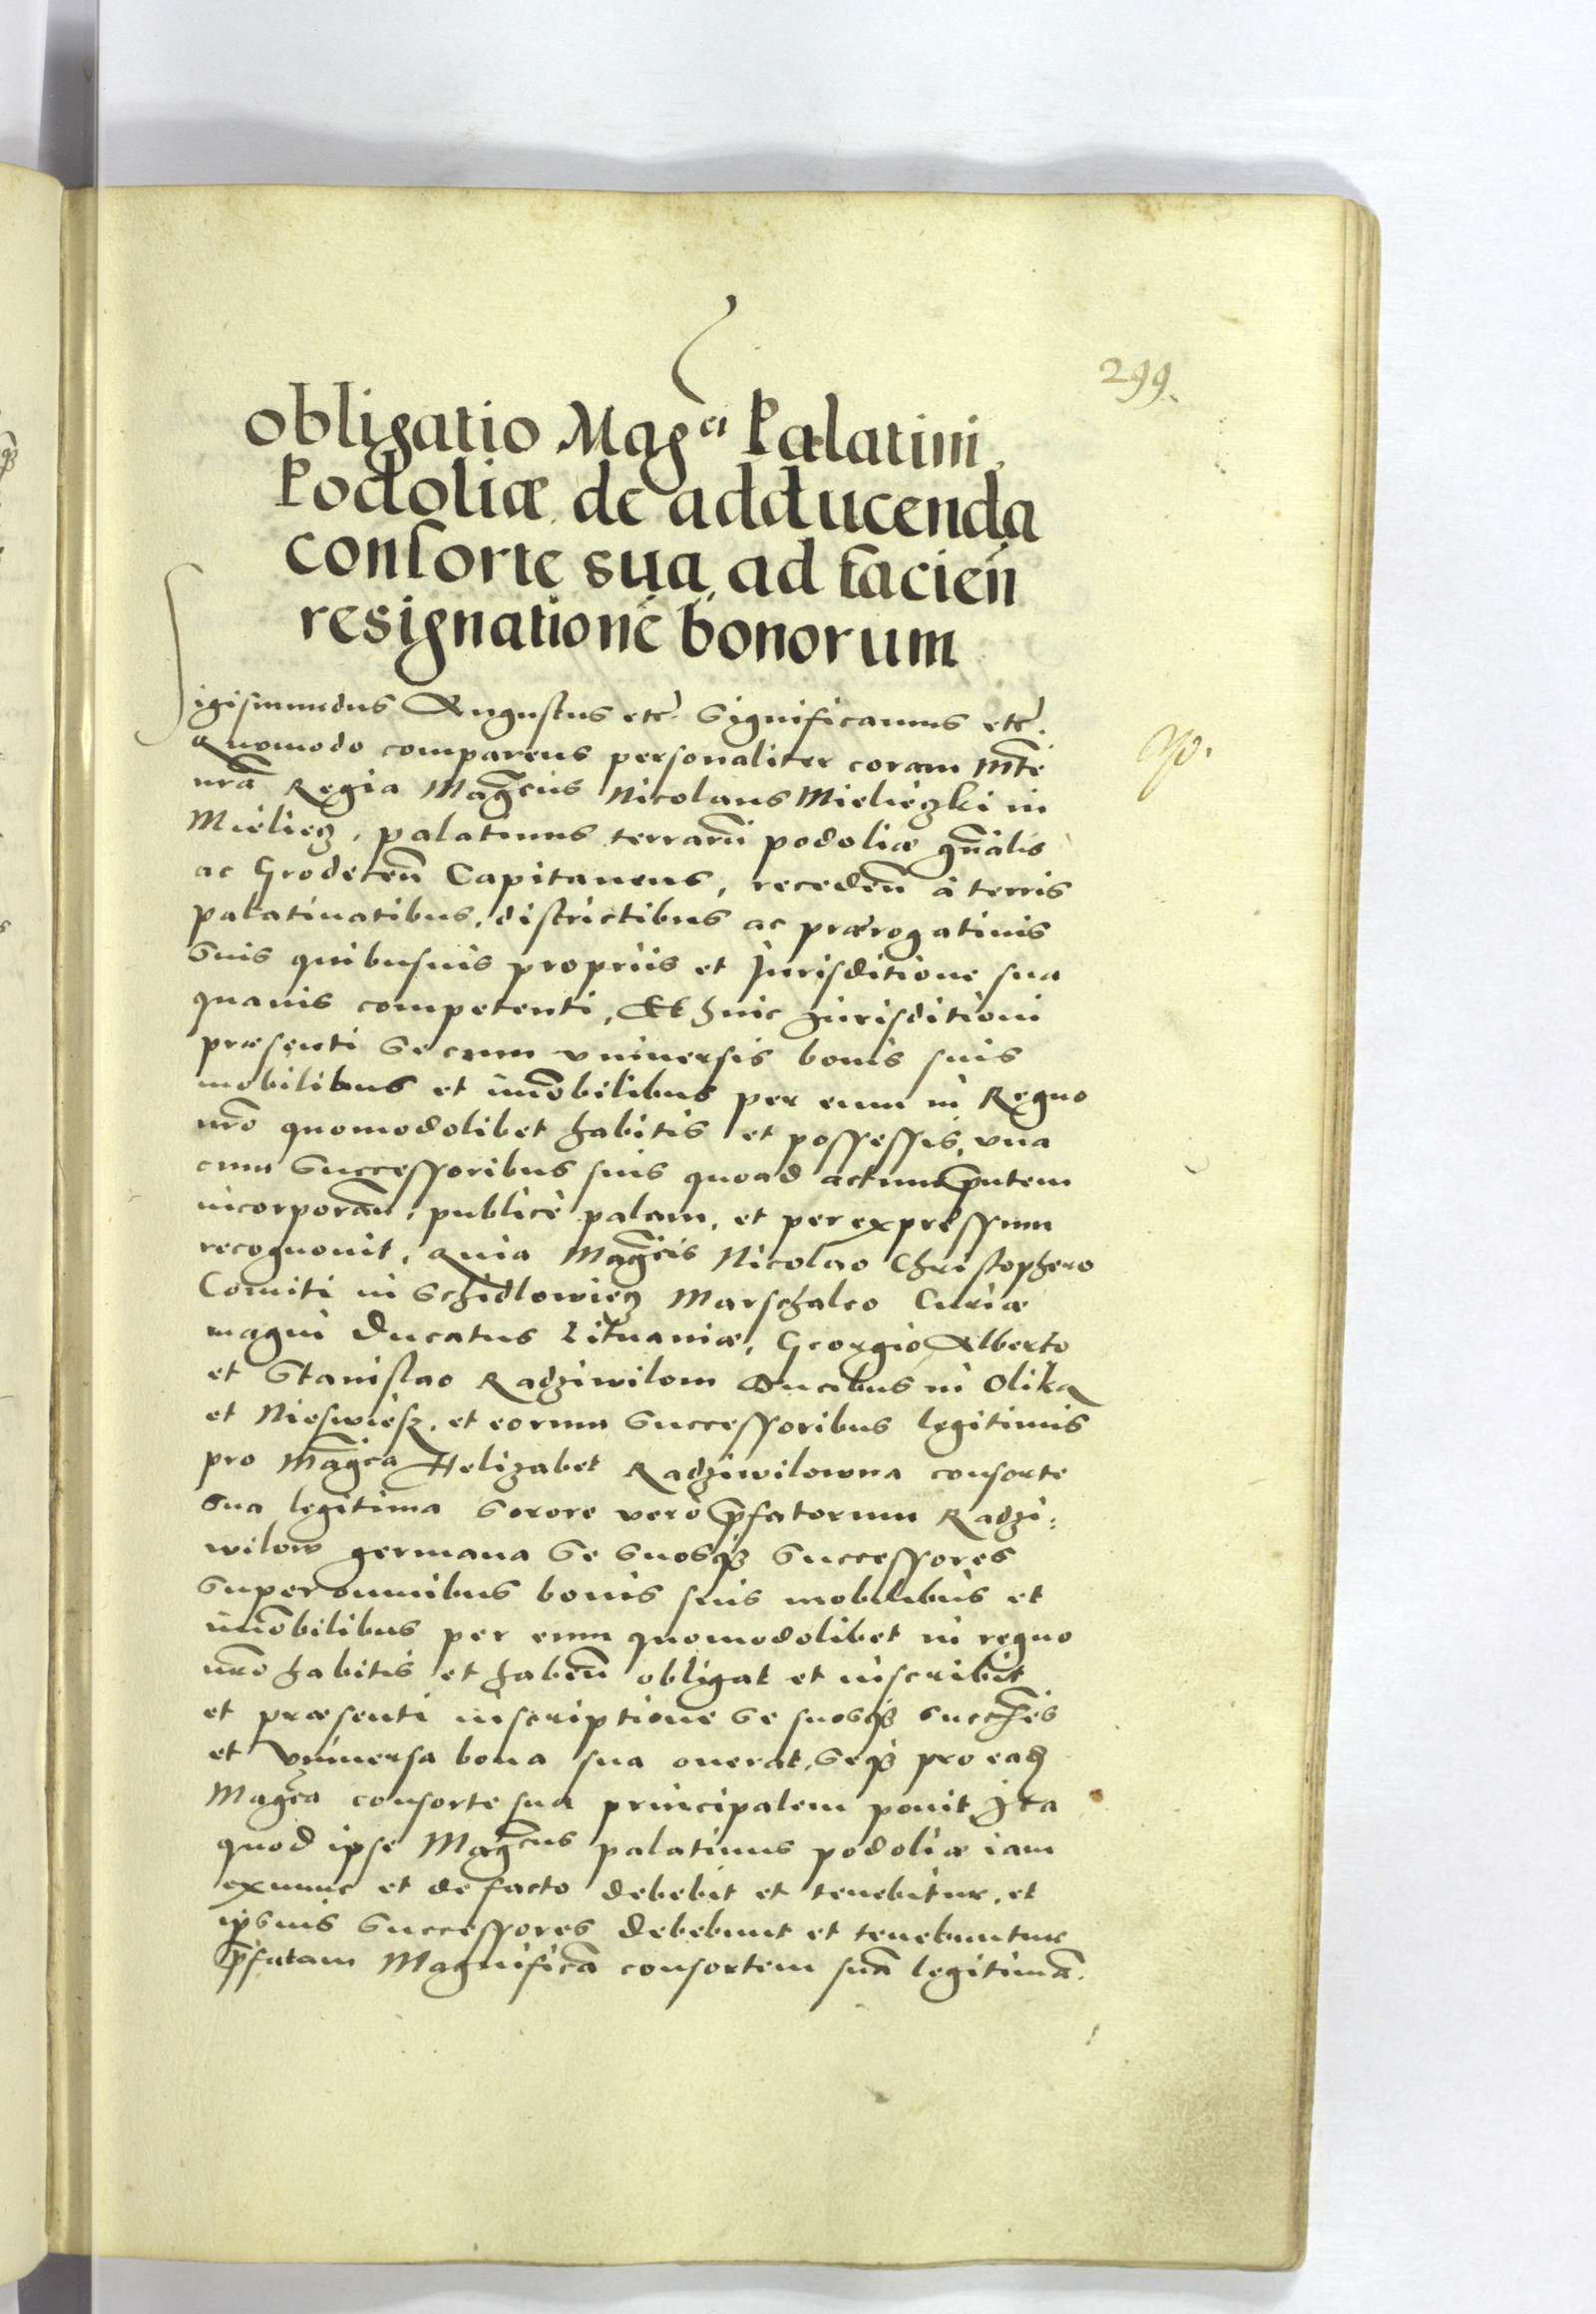 299.
obligatio Mag^ci Palatini
Podoliæ de adducenda
consorte sua, ad facień
resignationē bonorum
Sigismundus Augustus etc̃. Significamus etc̃.
Quomodo comparens personaliter coram Mte͂
nrã Regia Mag͂cus Nicolaus Mieliezki in
Mieliecz, palatinus terrarũ podoliæ gn͂alis
ac Grodeceñ Capitaneus, recedeñ à terris
palatinatibus, districtibus ac prærogatiuis
Suis quibusuis proprijs et Jurisditione sua
quauis competenti, Et huic Jurisditioni
præsenti Se cum vniuersis bonis suis
mobilibus et im̃obilibus per eum in Regno
nr̃o quomodolibet habitis et possessis, vna
cum Successoribus suis quoad actum p̃ntem
incorporañ, publicè palam, et per expressum
recognouit, Quia Mag͂cis Nicolao Christophero
Comiti in Schidlowiecz Marschalco Curiæ
magni Ducatus Lituaniæ, Georgio, Alberto
et Stanislao Radziwilom Ducibus in Olika
et Nieswiesz, et eorum Successoribus legitimis
pro Mag͂ca Helizabet Radziwilowna consorte
sua legitima Sorore verò p̃fatorum Radzi:
wilow germana Se Suosq3 Successores
Super omnibus bonis suis mobilibus et
im̃obilibus per eum quomodolibet in regno
nr̃o habitis et habeñ obligat et inscribit
et præsenti inscriptione Se suosq3 succes͂
et vniuersa bona sua onerat, Seq3 pro ead͂
Mag͂ca consorte sua principalem ponit Ita
quod ipse Mag͂cus palatinus podoliæ iam
ex nunc et de facto debebit et tenebitur, et
ipsius Successores debebunt et tenebuntur
p̃fatam Magnificã consortem suã legitimã.